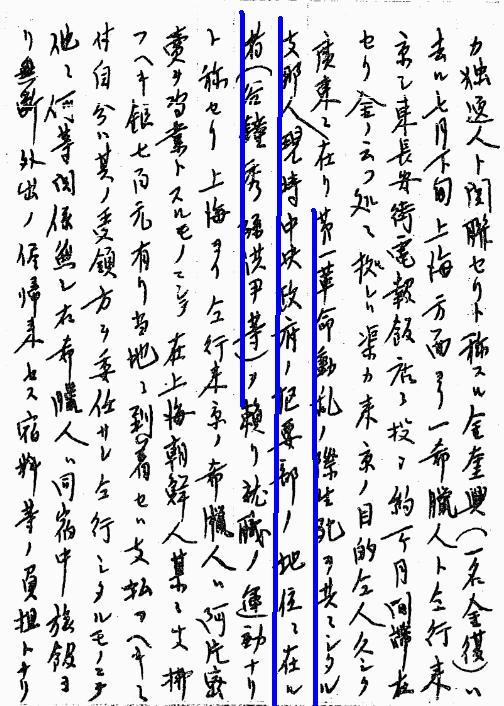 カ独逸人ト関聯セリト称スル金奎興(一名金復)ハ
去ル七月下旬上海方面ヨリ一希臘人ト仝行来
京シ東長安街電報飯店ニ投シ約一ケ月間滞在
セリ金ノ云フ処ニ拠レハ渠カ来京ノ目的仝人久シク
廣東ニ在リ第一革命動乱ノ際生死ヲ共ニシタル
支那人現時中央政府ノ枢要部ノ地位ニ在ル
者(谷鐘秀張洪甲等)ヲ頼リ就職ノ運動ナリ
ト称セリ上海ヨリ仝行来京ノ希臘人ハ阿片密
賣ヲ為業トスルモノニシテ在上海朝鮮人某ニ支拂
フヘキ銀七百元有リ当地ニ到着セハ支払フヘキニ
付自分ハ其ノ受領方ヲ委任サレ仝行シタルモノニテ
他ニ何等関係無シ右希臘人ハ同宿中旅飯ヨ
リ無断外出ノ侭帰来セス宿料等ノ負担トナリ